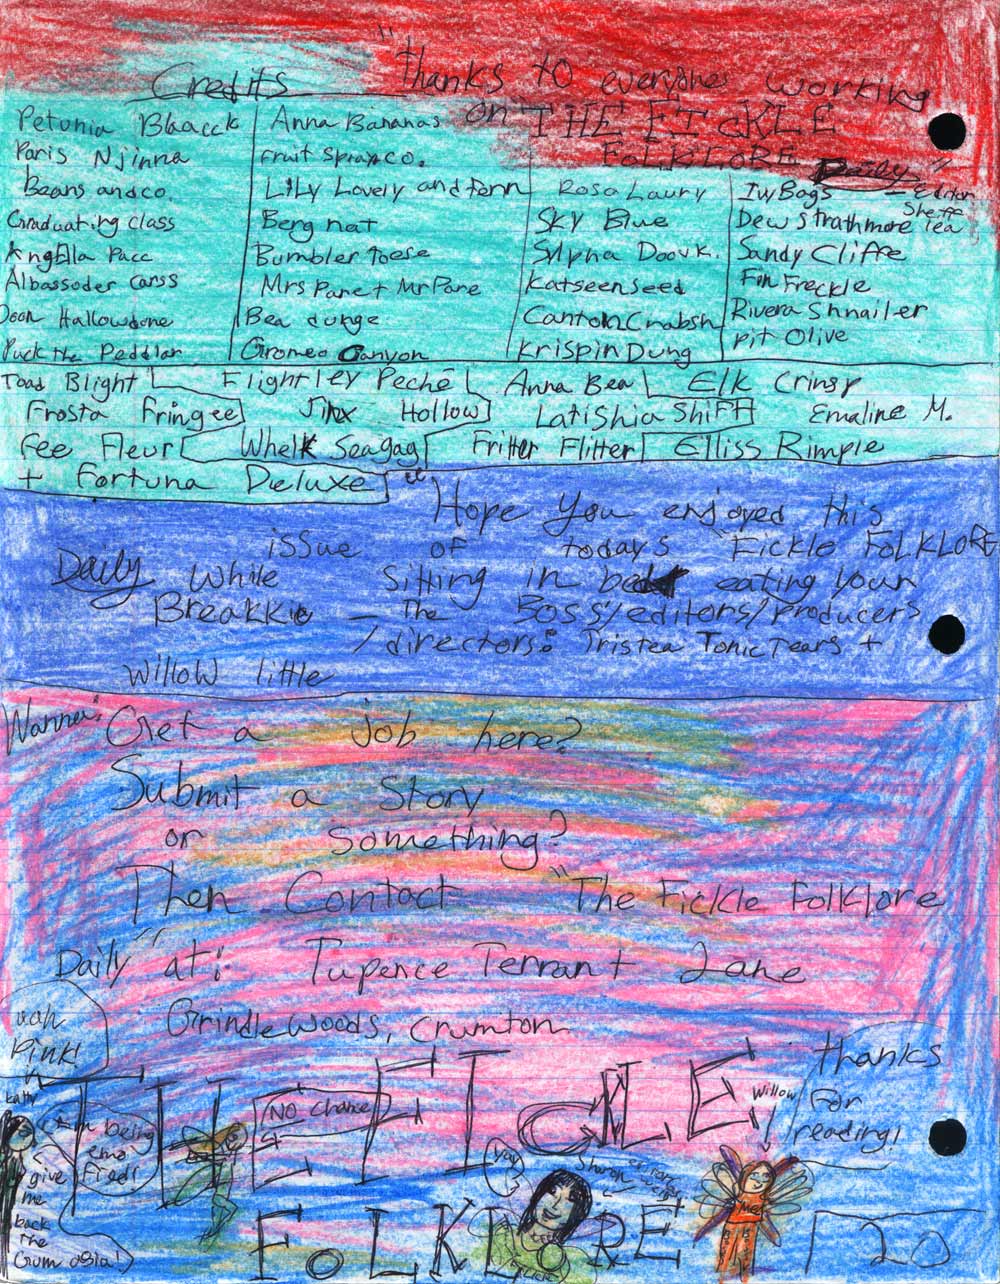 Credits
"thanks to everyone working
on THE FICKLE
FOLKLORE Daily"
- Editor
Sheff
Petunia Blaacck
Paris Njinna
Beans and co.
Graduating class
AngElla Pacc
Albassoder Carss
Doon Hallowdone
Puck the Peddlar
Anna Bananas
Fruit Spray co.
LiLy Lovely and Fenn
Berg nat
Bumbler toese
Mrs Pare + Mr Pare
Bea dunge
Gromeo Canyon
Rosa Laury
SKY Blue
Sylpha Doovk.
Katseenseed
Canton Crabsh
Krispin Dung
Ivy Bags
Dew Strathmore Tea
Sandy Cliffe
Fin Freckle
Rivera Shnailer
pit Olive
Toad Blight Flightley Peché Anna Bea Elk Crinsp
Frosta Fringee Jinx Hollow Latishia Shift Emaline M.
Fee Fleur Whelk Seagag Fritter Flitter Elliss Rimple
+ Fortuna Deluxe
"Hope you enjoyed this
issue of todays Fickle FOLKLORE
Daily While Sitting in bed eating your
Breakkie - The Boss/editors/producers
/directors: Tristea Tonic Tears +
Willow little
Wanna: Get a job here?
Submit a Story
or Something?
Then Contact "The Fickle Folklore
Daily" at: Tupence Terrant Lane
Grindle Woods, Crumton
uah
Pink!
THE FICKLE
thanks
for
reading!
Kathy
I'm being
emo
Fied!
NO chance
give
me
back
the
Gum
yay
Sharon
Willow
FOLKLORE
20